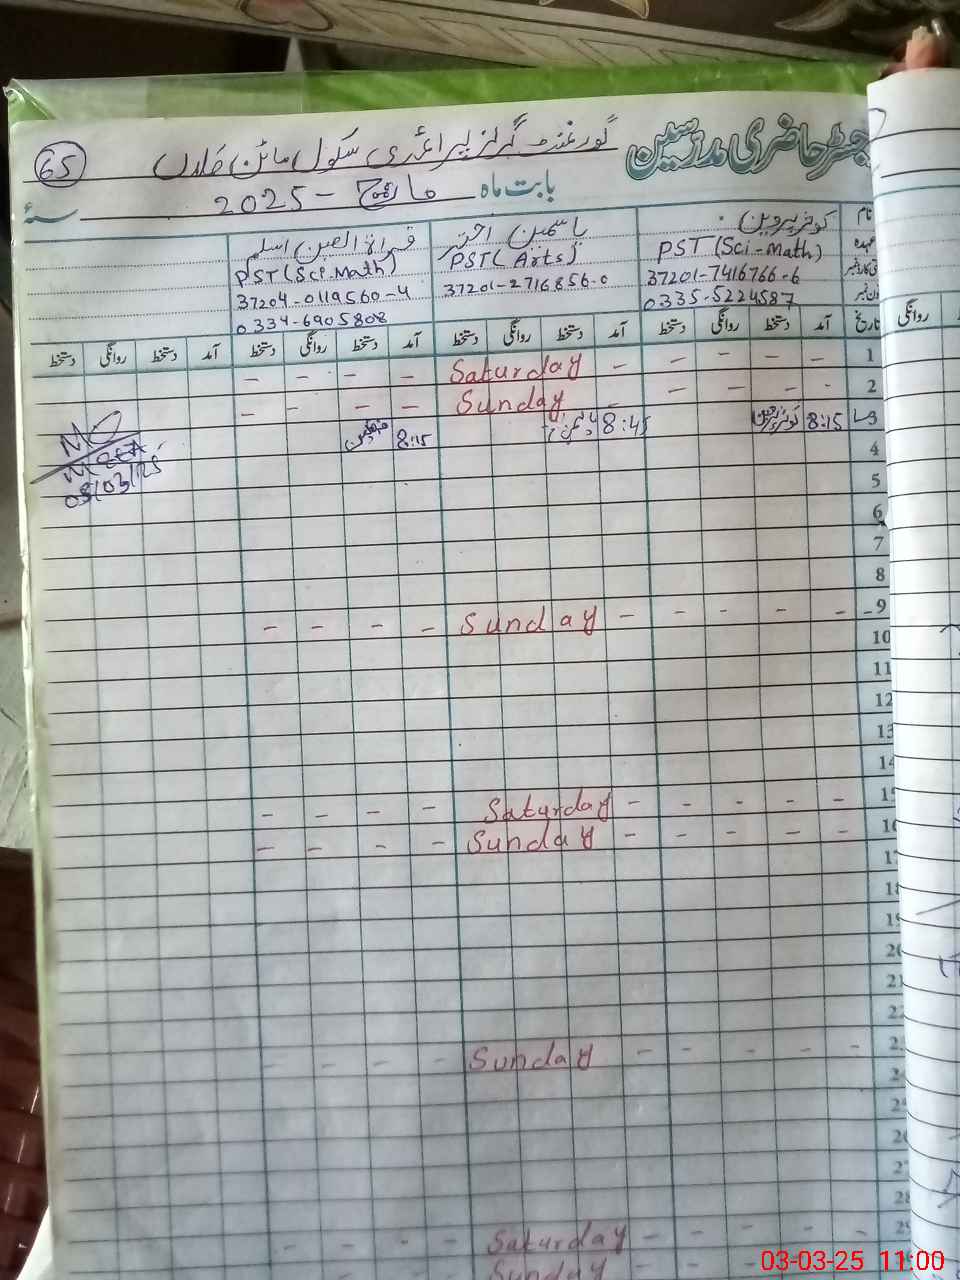 رجسٹر حاضری مدرسین گورنمنٹ گرلز پرائمری سکول
65
بابت ماہ مارچ - 2025 سنہ
نام کوثر پروین یاسمین اختر قراۃ العین اسلم
عہدہ PST (Sci-Math) PST (Arts) PST (Sci.Math)
37201-7416766-6 37201-2716856-0 37204-0119560-4
0335-5224587 0334-6905808
تاریخ آمد دستخط روانگی دستخط آمد دستخط روانگی دستخط آمد دستخط روانگی دستخط آمد دستخط روانگی دستخط
روانگی
1 - - - - - Saturday - - - -
2 - - - - - Sunday - - - -
3 8:15 کوثر پروین 8:45 8:15
4
MEA
03/03/25
5
6
7
8
9 - - - - - Sunday - - - -
10
11
12
13
14
15 - - - - - Saturday - - - -
16 - - - - - Sunday - - - -
17
18
19
20
21
22
23 - - - - - Sunday - - - -
24
25
26
27
28
29 - - - - - Saturday - - - -
Sunday
03-03-25 11:00